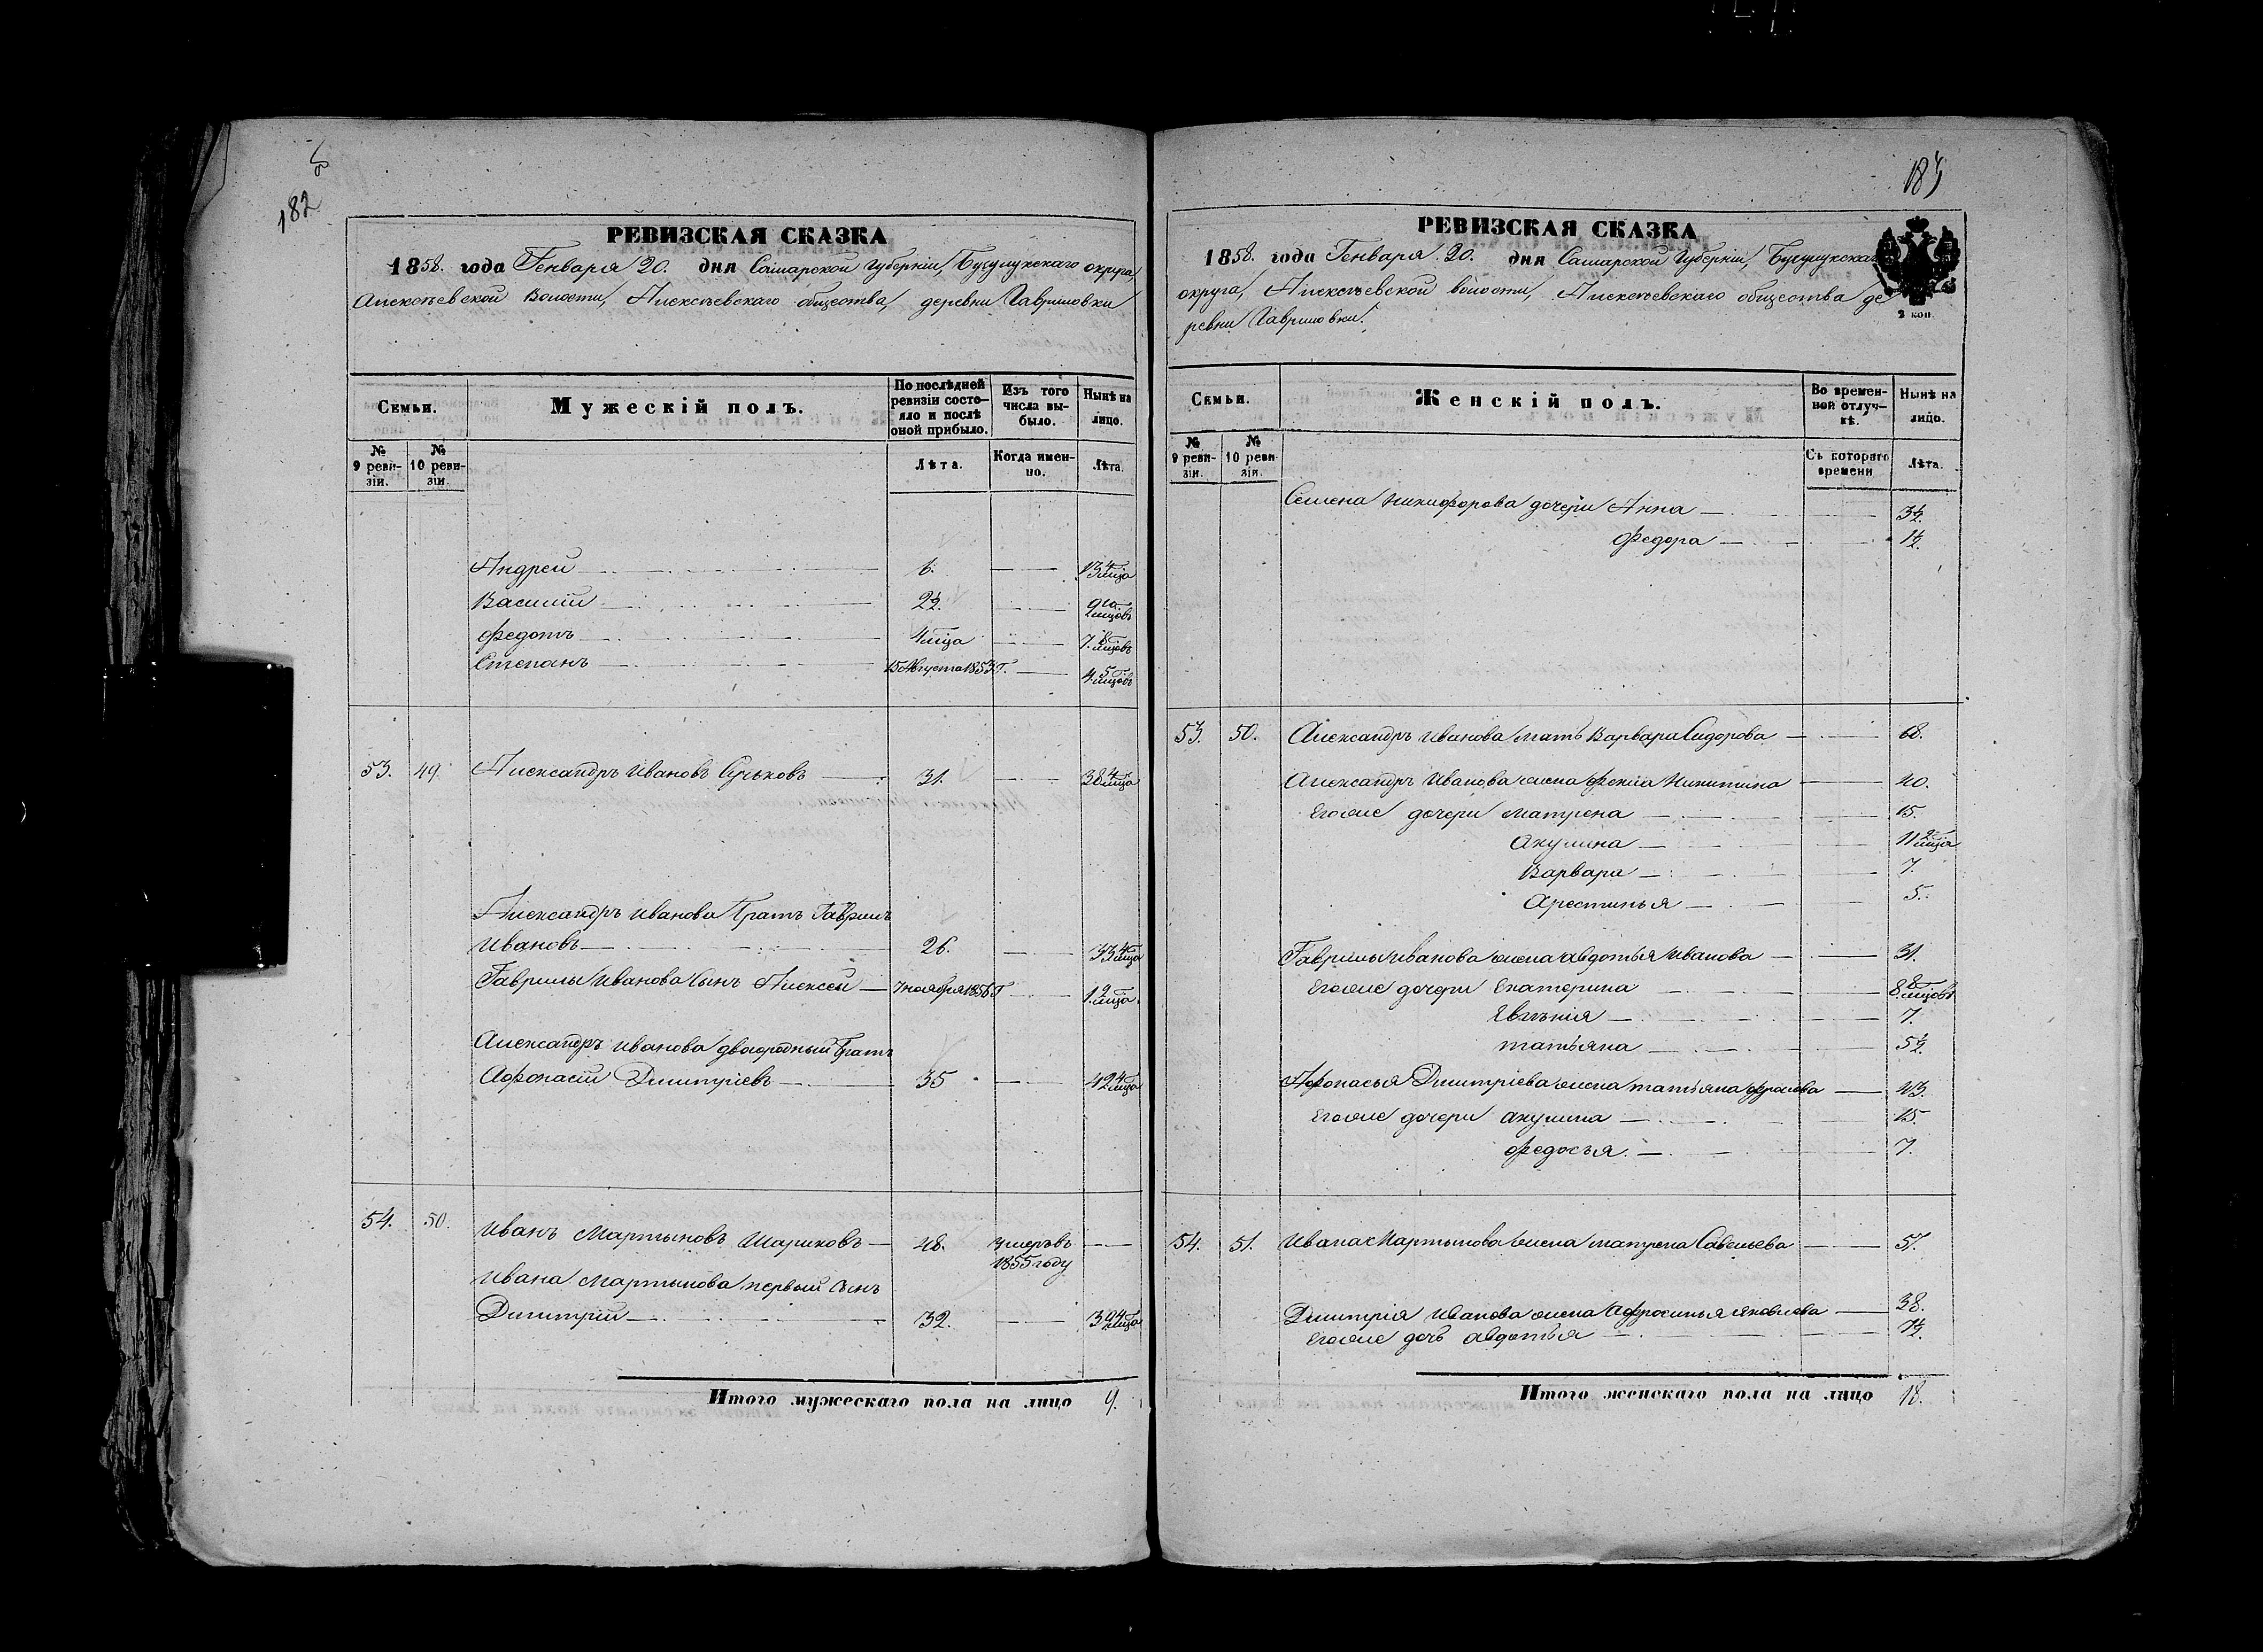 182
РЕВИЗСКАЯ СКАЗКА
1858. года Генваря 20. дня Самарской губерніи, Бузулукскаго округа,
Алексѣевской волости, Алексѣевскаго общества, деревни Гавриловки
Семьи.
Мужескій полъ.
По послѣдней ревизіи состояло и послѣ оной прибыло.
Изъ того числа выбыло.
Нынѣ на лицо.
№ 9 ревизіи.
№ 10 ревизіи.
Лѣта.
Когда именно.
Лѣта.
Андрей 6. 13 4 мца
Василій 2½. 9 10 мцовъ
Федотъ 4 мца 7. 8 мцовъ
Степанъ 15 Августа 1853 Г. 4. 5 мцовъ
53. 49. Александръ Ивановъ 31. 38 4 мца
Александръ Иванова братъ Гаврилъ
Ивановъ 26. 33 4 мца
Гаврилы Иванова сынъ Алексей 7 ноября 1856 Г 1. 2 мца
Александръ Иванова двоюродный братъ
Афонасій Дмитріевъ 35 42 4 мца
54. 50. Иванъ Мартыновъ Шариковъ 48. умеръ въ
1855 году
Ивана Мартынова первый сынъ
Дмитрій 32. 39 4 мца
Итого мужескаго пола на лицо 9.
183
РЕВИЗСКАЯ СКАЗКА
1858. года Генваря 20. дня Самарской Губерніи, Бузулукскаго
округа, Алексѣевской волости, Алексѣевскаго общества де
ревни Гавриловки.
2 коп
Семьи.
Женскій полъ.
Во временной отлучкѣ.
Нынѣ на лицо.
№ 9 ревизіи.
№ 10 ревизіи.
Съ котораго времени
Лѣта.
Семена Никифорова дочери Анна 3½.
Федора 1½.
53. 50. Александръ Иванова мать Варвара Сидорова 68.
Александръ Иванова жена Фекла Никитина 40.
Его же дочери Матрена 15.
Акулина 11 2 мца
Варвара 7.
Арестинья 5.
Гаврилы Иванова жена Авдотья Иванова 31.
Его же дочери Екатерина 8. 8 мцовъ
Евгѣнія 7.
Татьяна 5½.
Афонасья Дмитріева жена Татьяна Фролова 43.
Его же дочери Акулина 15.
Федосья. 7.
54. 51. Ивана Мартынова жена Матрена Савельева 57.
Дмитрія Иванова жена Афросинья Яковлева 38.
Его же дочь Авдотья 7½.
Итого женскаго пола на лицо 18.